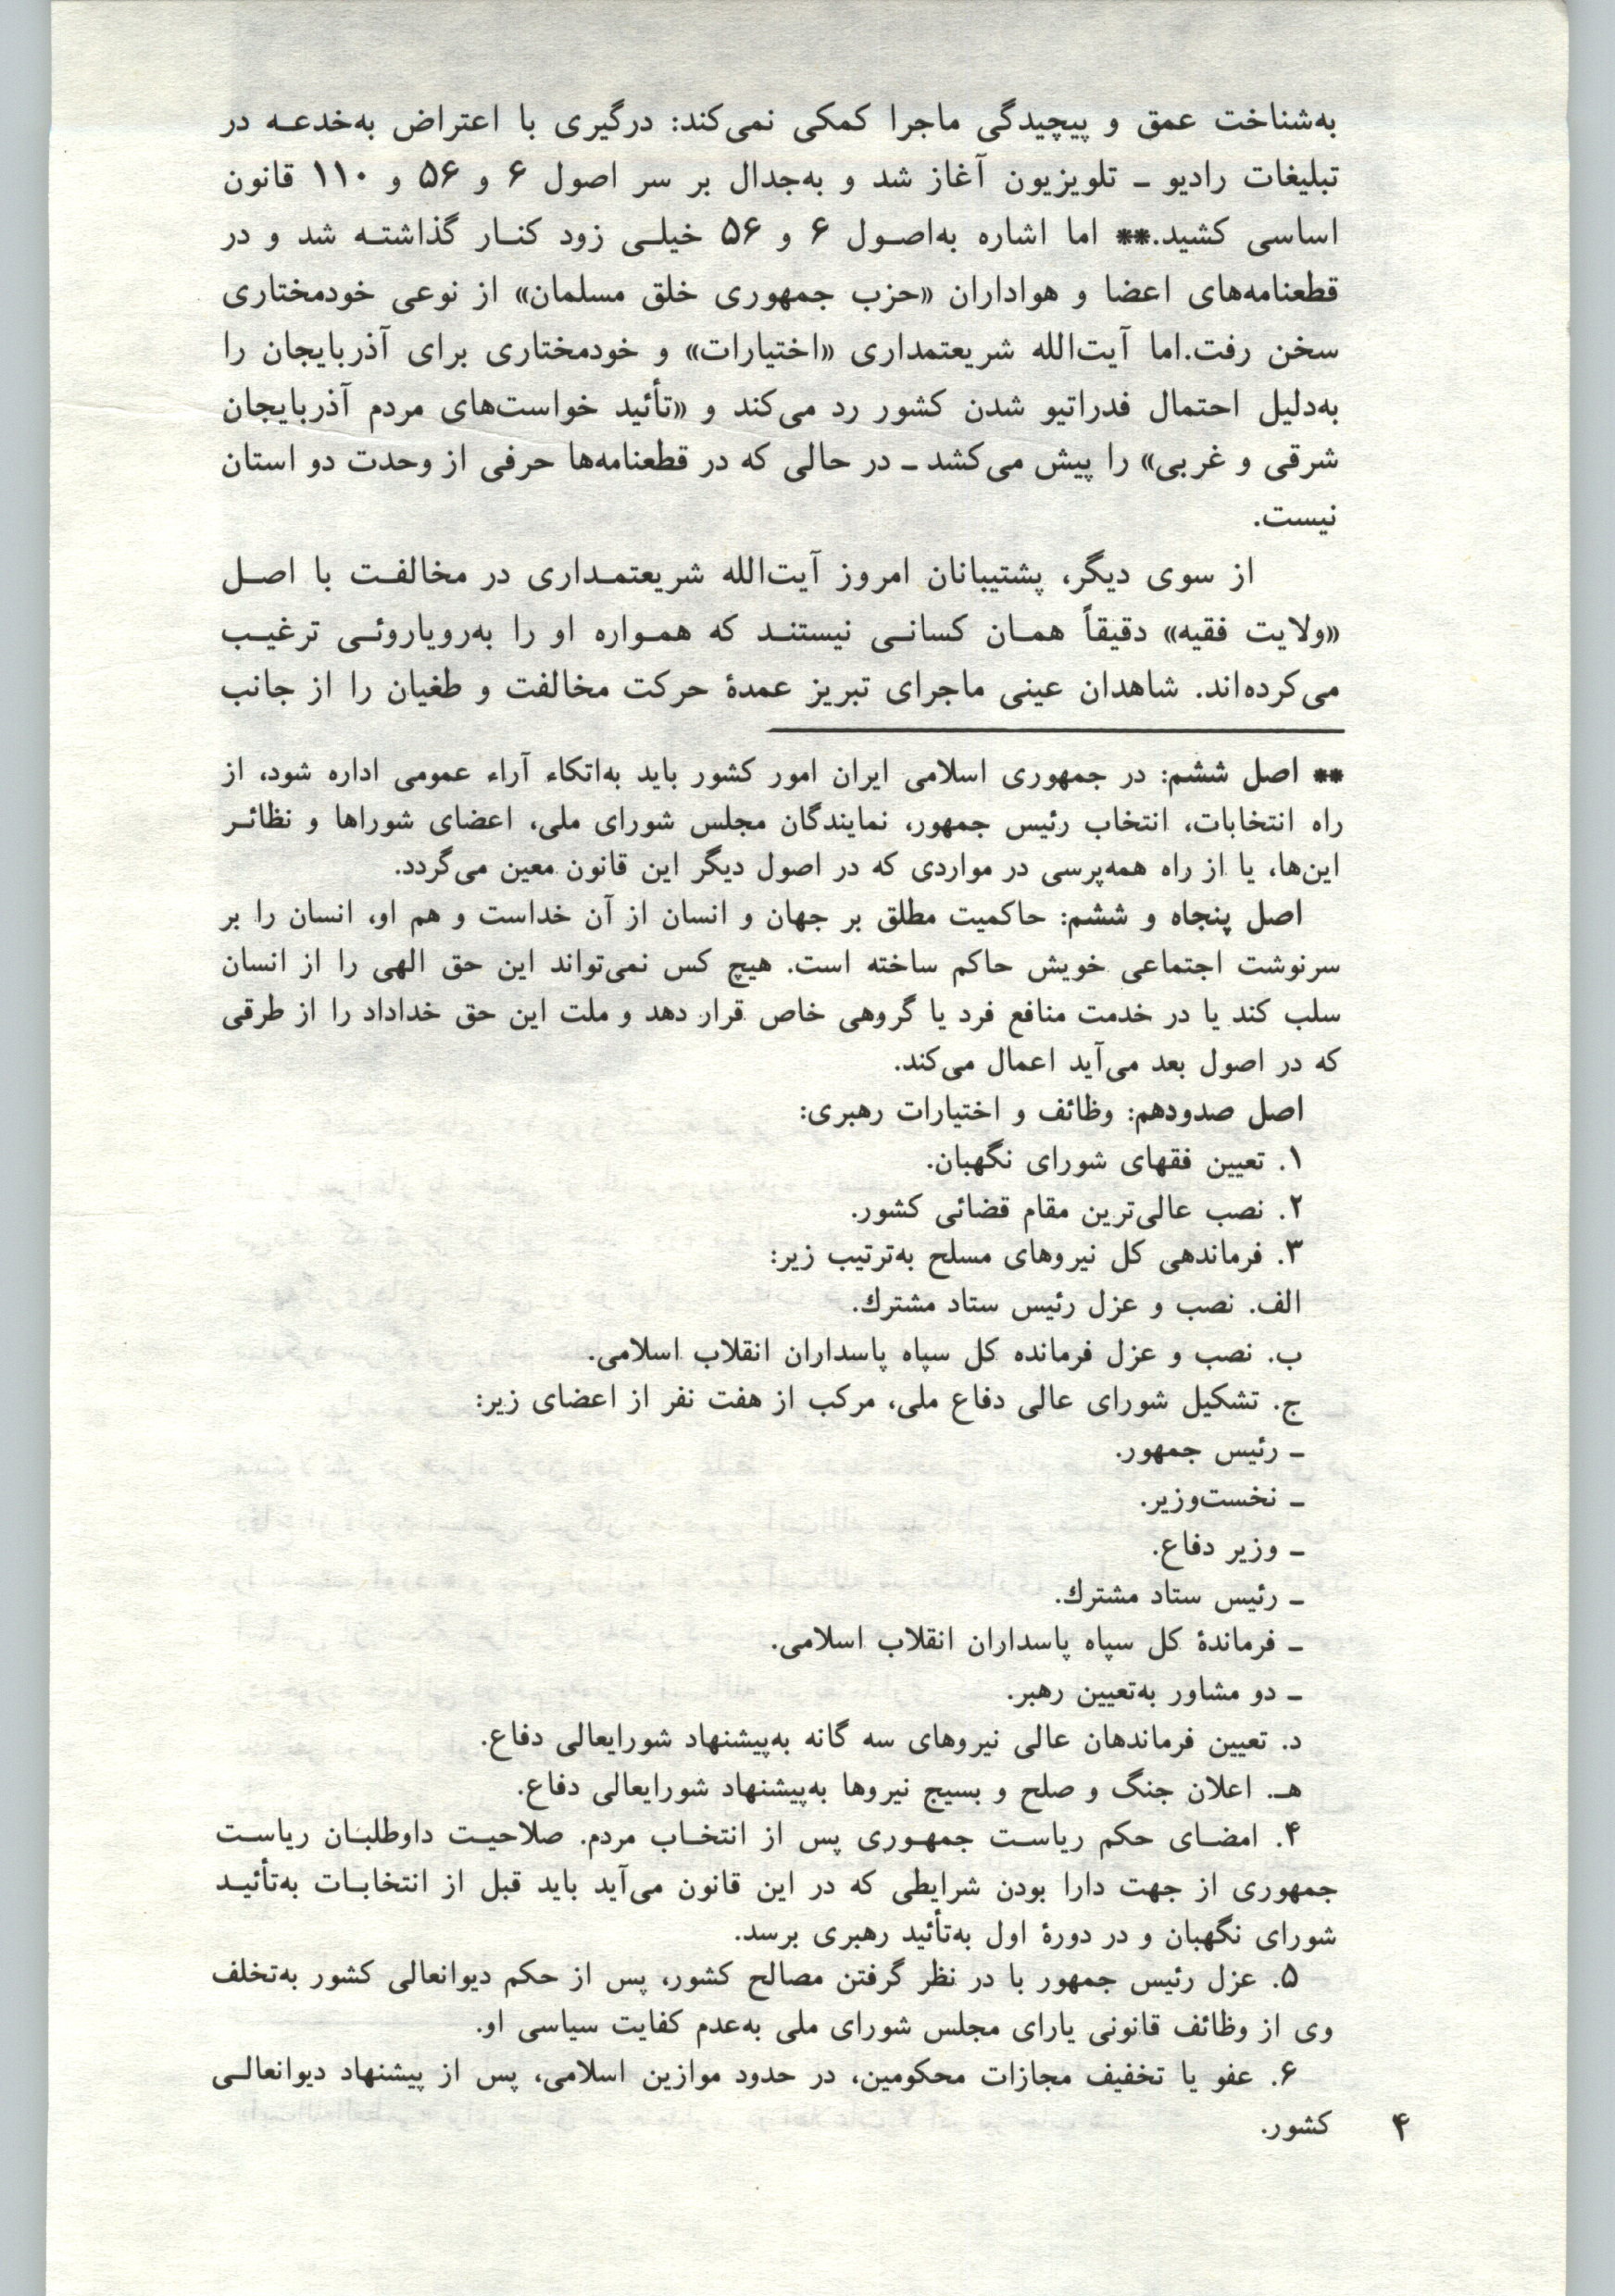 به‌شناخت عمق و پیچیدگی ماجرا کمکی نمی‌کند: درگیری با اعتراض به‌خدعه در
تبلیغات رادیو ـ تلویزیون آغاز شد و به‌جدال بر سر اصول ۶ و ۵۶ و ۱۱۰ قانون
اساسی کشید.** اما اشاره به‌اصول ۶ و ۵۶ خیلی زود کنار گذاشته شد و در
قطعنامه‌های اعضا و هواداران «حزب جمهوری خلق مسلمان» از نوعی خودمختاری
سخن رفت.اما آیت‌الله شریعتمداری «اختیارات» و خودمختاری برای آذربایجان را
به‌دلیل احتمال فدراتیو شدن کشور رد می‌کند و «تأئید خواست‌های مردم آذربایجان
شرقی و غربی» را پیش می‌کشد ـ در حالی که در قطعنامه‌ها حرفی از وحدت دو استان
نیست.
از سوی دیگر، پشتیبانان امروز آیت‌الله شریعتمداری در مخالفت با اصل
«ولایت فقیه» دقیقاً همان کسانی نیستند که همواره او را به‌رویاروئی ترغیب
می‌کرده‌اند. شاهدان عینی ماجرای تبریز عمدهٔ حرکت مخالفت و طغیان را از جانب
** اصل ششم: در جمهوری اسلامی ایران امور کشور باید به‌اتکاء آراء عمومی اداره شود، از
راه انتخابات، انتخاب رئیس جمهور، نمایندگان مجلس شورای ملی، اعضای شوراها و نظائر
این‌ها، یا از راه همه‌پرسی در مواردی که در اصول دیگر این قانون معین می‌گردد.
اصل پنجاه و ششم: حاکمیت مطلق بر جهان و انسان از آن خداست و هم او، انسان را بر
سرنوشت اجتماعی خویش حاکم ساخته است. هیچ کس نمی‌تواند این حق الهی را از انسان
سلب کند یا در خدمت منافع فرد یا گروهی خاص قرار دهد و ملت این حق خداداد را از طرقی
که در اصول بعد می‌آید اعمال می‌کند.
اصل صدودهم: وظائف و اختیارات رهبری:
۱. تعیین فقهای شورای نگهبان.
۲. نصب عالی‌ترین مقام قضائی کشور.
۳. فرماندهی کل نیروهای مسلح به‌ترتیب زیر:
الف. نصب و عزل رئیس ستاد مشترك.
ب. نصب و عزل فرمانده کل سپاه پاسداران انقلاب اسلامی.
ج. تشکیل شورای عالی دفاع ملی، مرکب از هفت نفر از اعضای زیر:
ـ رئیس جمهور.
ـ نخست‌وزیر.
ـ وزیر دفاع.
ـ رئیس ستاد مشترك.
ـ فرماندهٔ کل سپاه پاسداران انقلاب اسلامی.
ـ دو مشاور به‌تعیین رهبر.
د. تعیین فرماندهان عالی نیروهای سه گانه به‌پیشنهاد شورایعالی دفاع.
هـ. اعلان جنگ و صلح و بسیج نیروها به‌پیشنهاد شورایعالی دفاع.
۴. امضای حکم ریاست جمهوری پس از انتخاب مردم. صلاحیت داوطلبان ریاست
جمهوری از جهت دارا بودن شرایطی که در این قانون می‌آید باید قبل از انتخابات به‌تأئید
شورای نگهبان و در دورهٔ اول به‌تأئید رهبری برسد.
۵. عزل رئیس جمهور با در نظر گرفتن مصالح کشور، پس از حکم دیوانعالی کشور به‌تخلف
وی از وظائف قانونی یارای مجلس شورای ملی به‌عدم کفایت سیاسی او.
۶. عفو یا تخفیف مجازات محکومین، در حدود موازین اسلامی، پس از پیشنهاد دیوانعالی
کشور.
۴